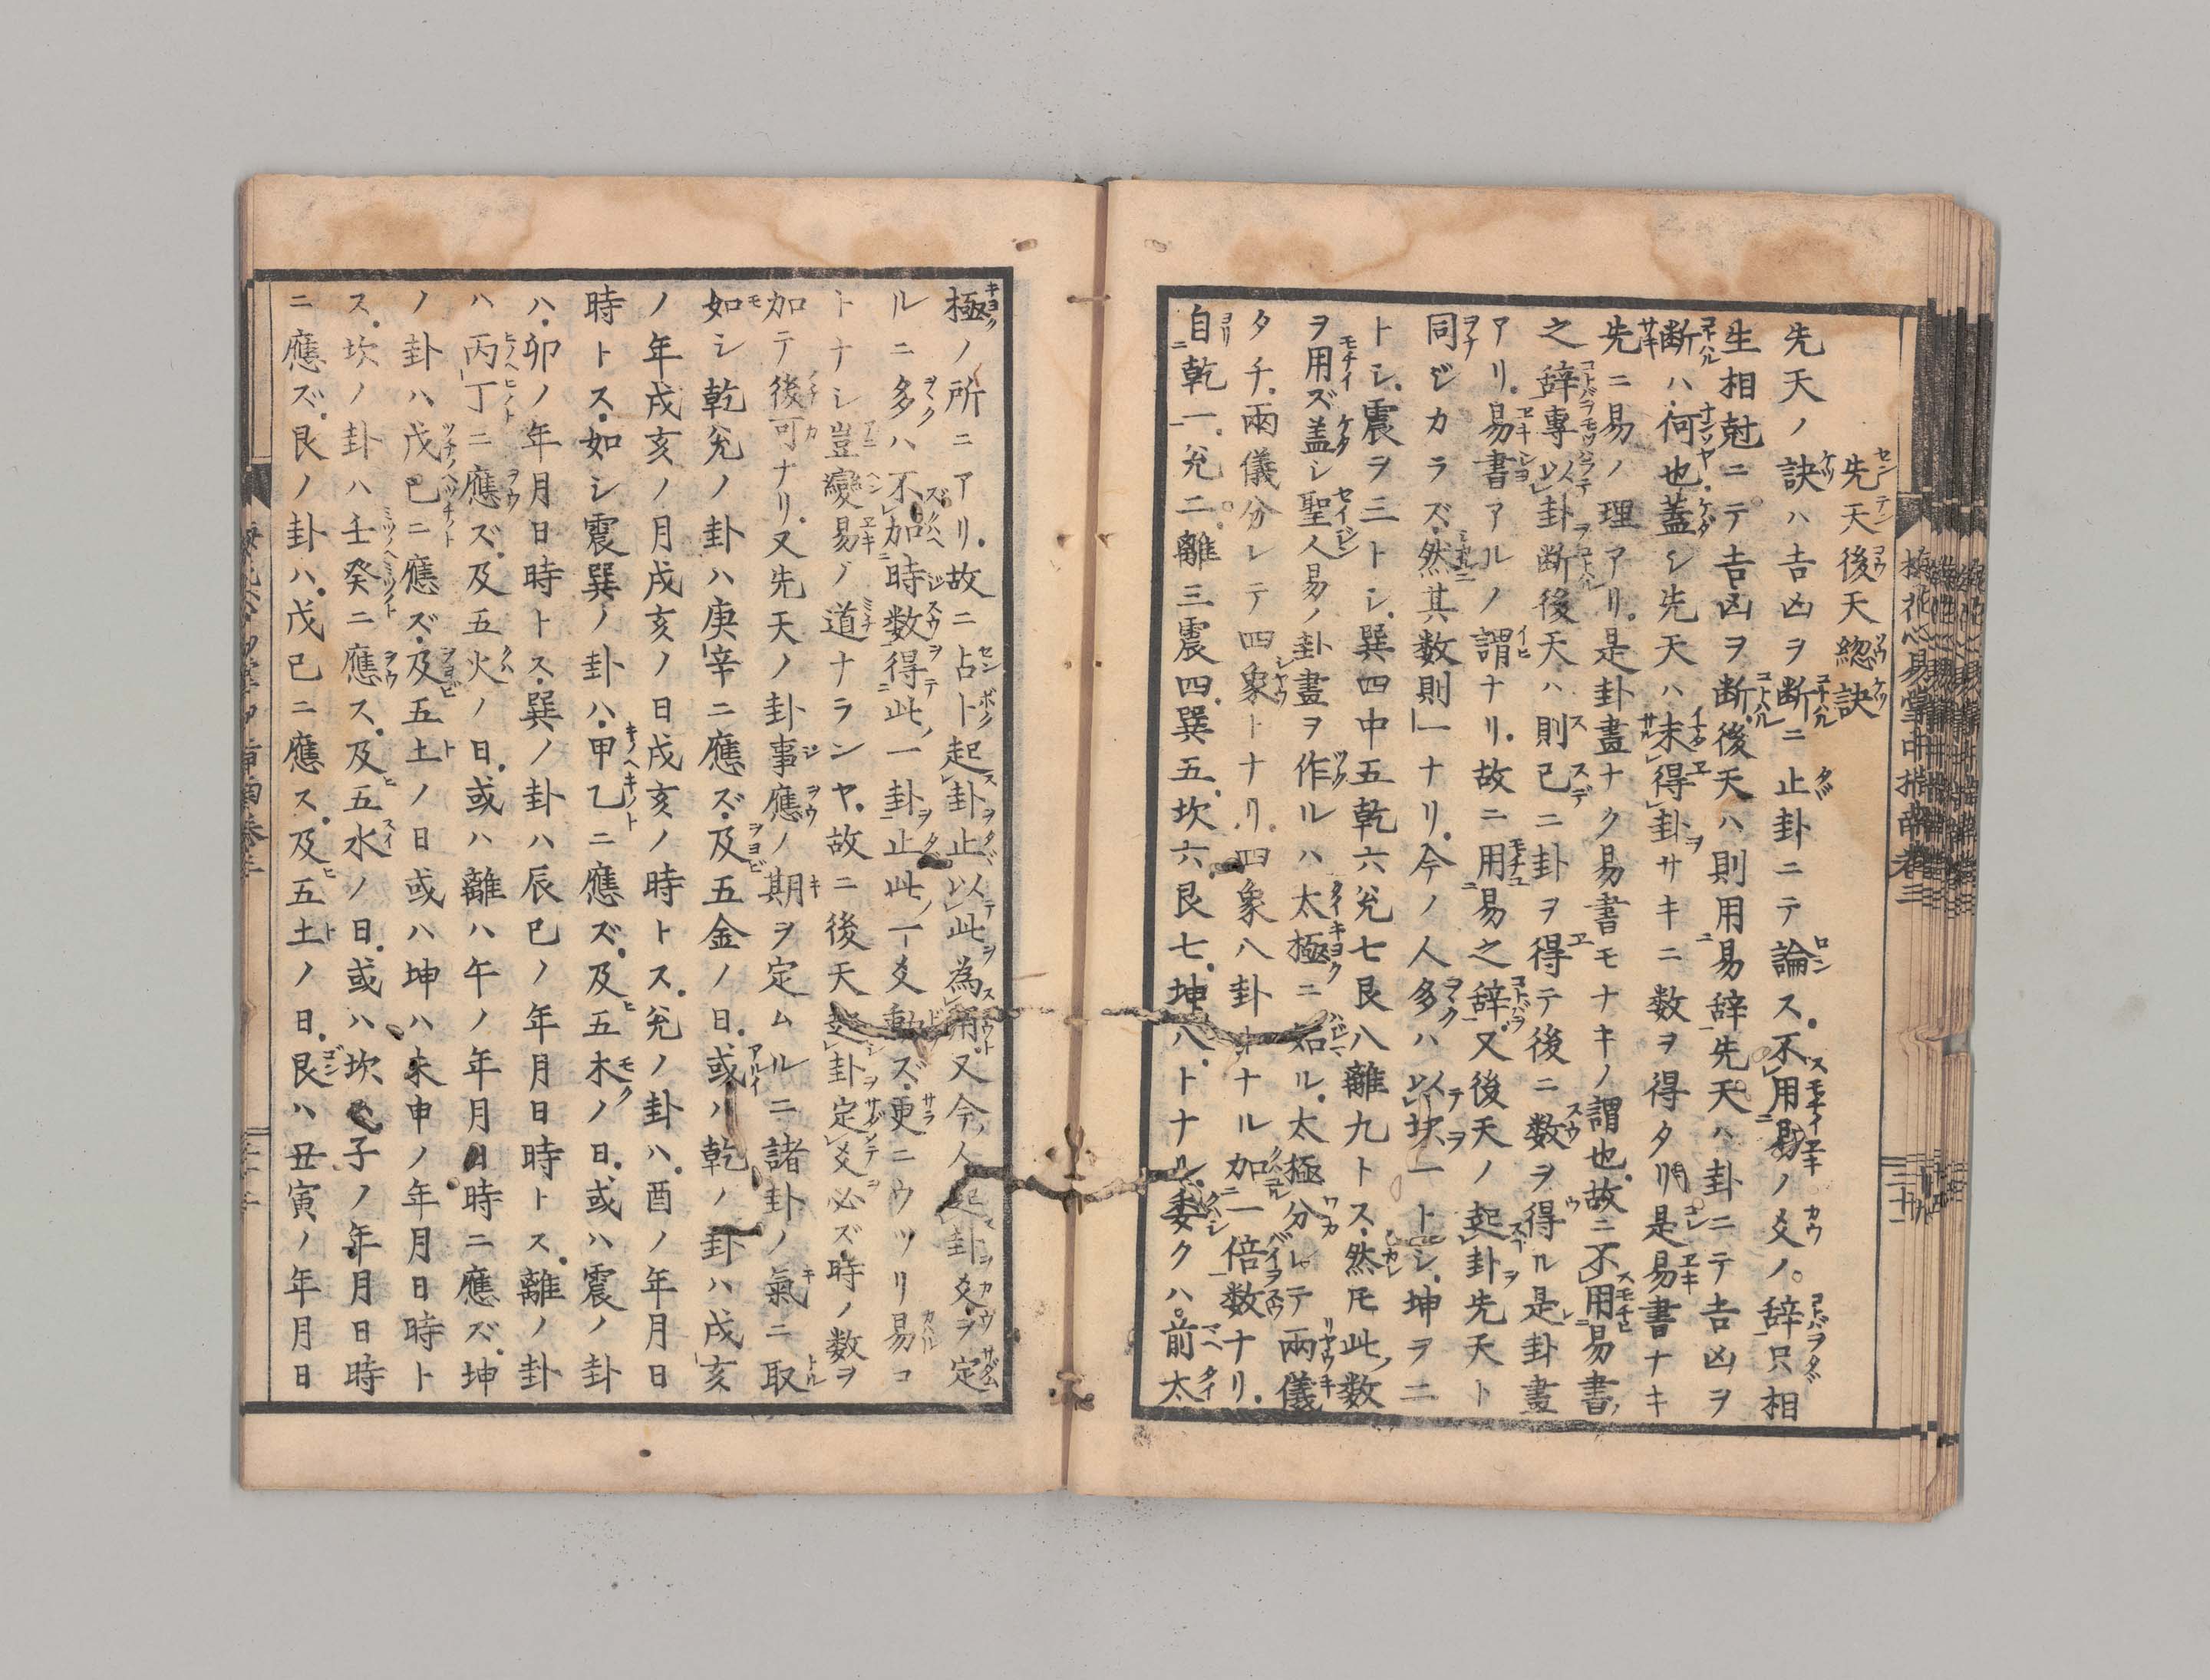 先天後天総訣
先天ノ訣ハ吉凶ヲ断ニ止卦ニテ論ス不用易ノ爻ノ辞只相
生相尅ニテ吉凶ヲ断後天ハ則用易辞先天ハ卦ニテ吉凶ヲ
断ハ何也蓋シ先天ハ未得卦サキニ数ヲ得タリ是易書ナキ
先ニ易ノ理アリ是卦畫ナク易書モナキノ謂也故ニ不用易書
之辞專以卦断後天ハ則己ニ卦ヲ得テ後ニ数ヲ得ル是卦畫
アリ易書アルノ謂ナリ故ニ用易之辞又後天ノ起卦先天ト
同ジカラズ然其数則一ナリ今ノ人多ハ以坎一トシ坤ヲ二
トシ震ヲ三トシ巽四中五乾六兊七艮八離九トス然𪜈此数
ヲ用ズ蓋シ聖人易ノ卦畫ヲ作ルハ太極ニ始ル太極分レテ兩儀
タチ兩儀分レテ四象トナリ四象八卦トナル加一倍数ナリ
自乾一兊二離三震四巽五坎六艮七坤八トナル委クハ前太
梅花心易掌中指南巻三
三十一
極ノ所ニアリ故ニ占卜起卦止以此為用又今人起卦爻ヲ定
ルニ多ハ不加時数得此一卦止此一爻動ズ更ニウツリ易コ
トナシ豈變易ノ道ナランヤ故ニ後天起卦定爻必ズ時ノ数ヲ
加テ後可ナリ又先天ノ卦事應ノ期ヲ定ムルニ諸卦ノ氣ニ取
如シ乾兊ノ卦ハ庚辛ニ應ズ及五金ノ日或ハ乾ノ卦ハ戌亥
ノ年戌亥ノ月戌亥ノ日戌亥ノ時トス兊ノ卦ハ酉ノ年月日
時トス如シ震巽ノ卦ハ甲乙ニ應ズ及五木ノ日或ハ震ノ卦
ハ卯ノ年月日時トス巽ノ卦ハ辰巳ノ年月日時トス離ノ卦
ハ丙丁ニ應ズ及五火ノ日或ハ離ハ午ノ年月日時ニ應ズ坤
ノ卦ハ戊己ニ應ズ及五土ノ日或ハ坤ハ未申ノ年月日時ト
ス坎ノ卦ハ壬癸ニ應ス及五水ノ日或ハ坎ハ子ノ年月日時
ニ應ズ艮ノ卦ハ戊己ニ應ス及五土ノ日艮ハ丑寅ノ年月日